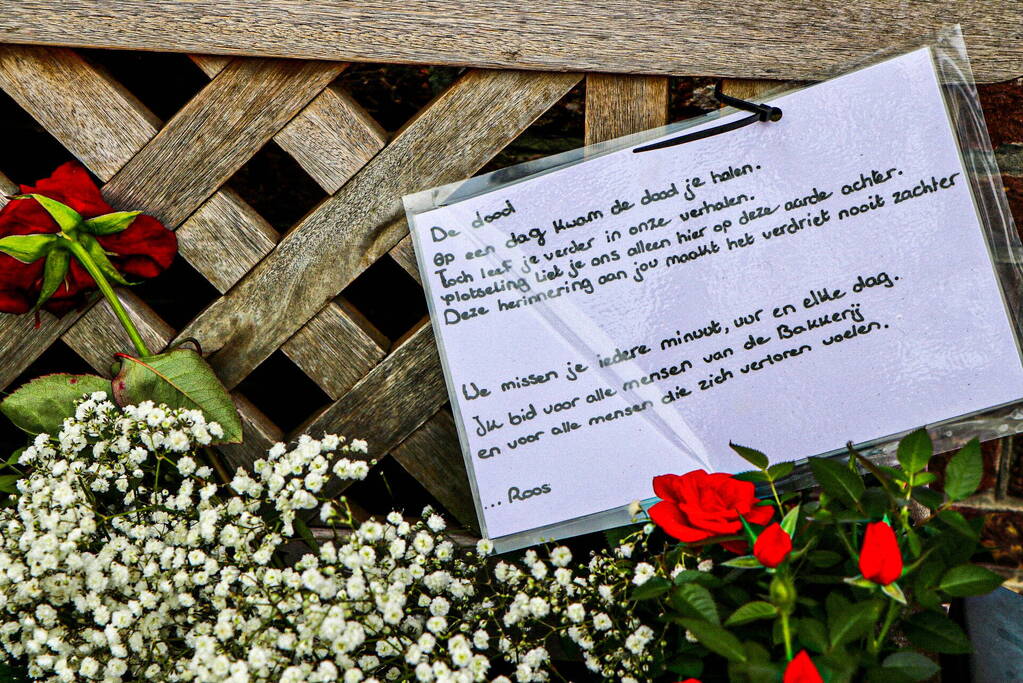 De dood
Op een dag kwam de dood je halen.
Toch leef je verder in onze verhalen.
Plotseling liet je ons alleen hier op deze aarde achter.
Deze herinnering aan jou maakt het verdriet nooit zachter
We missen je iedere minuut, uur en elke dag.
Ik bid voor alle mensen van de Bakkerij
en voor alle mensen die zich verloren voelen.
...Roos